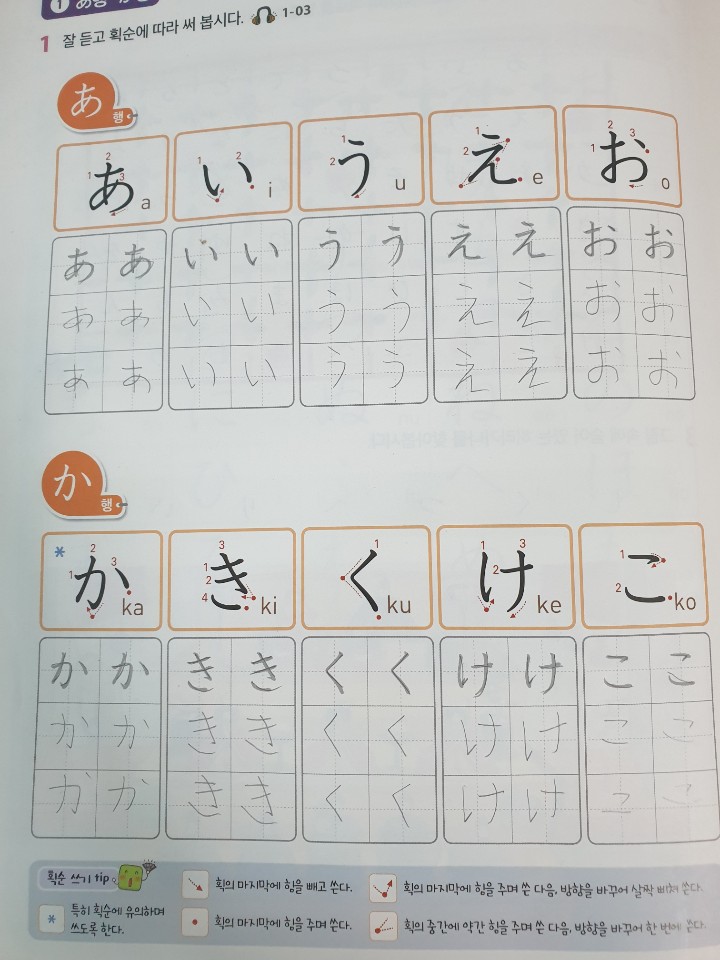 1 잘 듣고 획순에 따라 써 봅시다. 1-03
あ 행
1 2 3 あ a
1 2 い i
1 2 う u
1 2 え e
1 2 3 お o
ああ いい うう ええ おお
ああ いい うう ええ おお
ああ いい うう ええ おお
か 행
* 1 2 3 か ka
1 2 3 4 き ki
1 く ku
1 2 3 け ke
1 2 こ ko
かか きき くく けけ ここ
かか きき くく けけ ここ
かか きき くく けけ ここ
획순 쓰기 tip
* 특히 획순에 유의하며
쓰도록 한다.
획의 마지막에 힘을 빼고 쓴다.
획의 마지막에 힘을 주며 쓴다.
획의 마지막에 힘을 주며 쓴 다음, 방향을 바꾸어 살짝 삐쳐 쓴다.
획의 중간에 약간 힘을 주며 쓴 다음, 방향을 바꾸어 한 번에 쓴다.